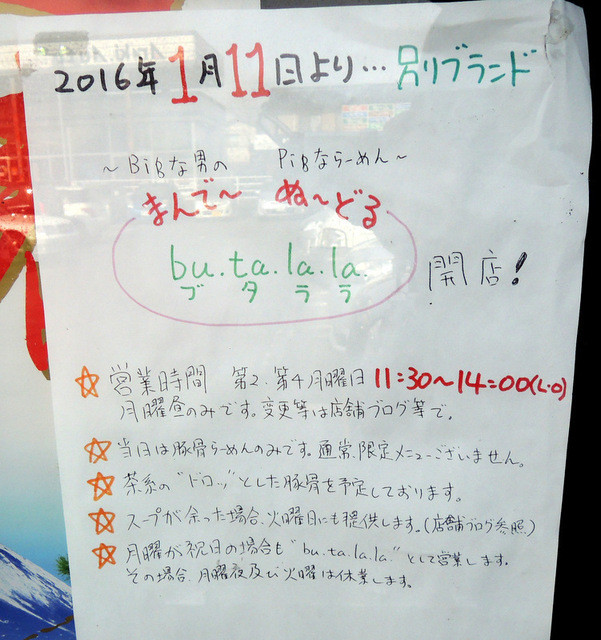 2016年1月11日より…別ブランド
～Bigな男の Pigならーめん～
まんで～ ぬ～どる
bu.ta.la.la.
ブ タ ラ ラ
開店!
☆営業時間 第2.第4月曜日 11:30～14:00(L.O)
月曜昼のみです。変更等は店舗ブログ等で。
☆当日は豚骨らーめんのみです。通常.限定メニューございません。
☆茶系の"ドロッ"とした豚骨を予定しております。
☆スープが余った場合.火曜日にも提供します。(店舗ブログ参照)
☆月曜が祝日の場合も"bu.ta.la.la."として営業します。
その場合.月曜夜及び火曜は休業します。